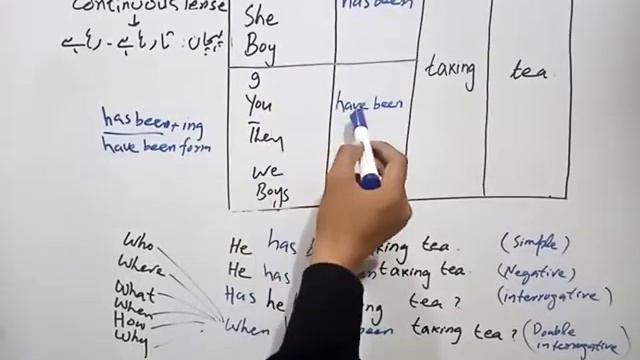 continuous tense
پہچان: تا رہا ہے - رہا ہے
has been + ing
have been form
She
Boy
has been
I
You
They
We
Boys
have been
taking
tea
Who
Where
What
When
How
Why
He has taking tea. (Simple)
He has taking tea. (Negative)
Has he tea? (interrogative)
When been taking tea? (Double interrogative)